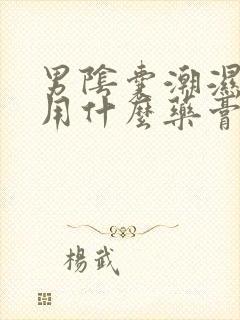 男陰囊潮濕
用什麼藥膏
楊武